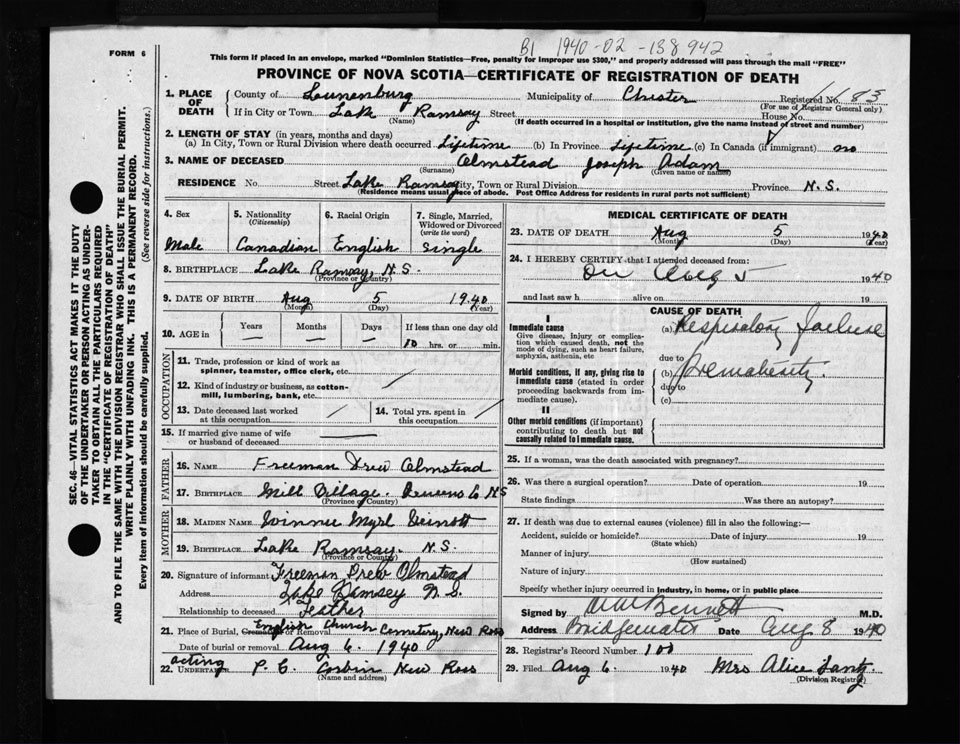 B1 1940-02-138942
FORM 6
This form if placed in an envelope, marked "Dominion Statistics—Free, penalty for improper use $300," and properly addressed will pass through the mail "FREE"
PROVINCE OF NOVA SCOTIA—CERTIFICATE OF REGISTRATION OF DEATH
1. PLACE OF DEATH County of Lunenburg Municipality of Chester Registered No.
(For use of Registrar General only)
If in City or Town Lake Ramsay Street House No.
(Name) (If death occurred in a hospital or institution, give the name instead of street and number)
2. LENGTH OF STAY (in years, months and days)
(a) In City, Town or Rural Division where death occurred Lifetime (b) In Province Lifetime (c) In Canada (if immigrant) no
3. NAME OF DECEASED Olmstead Joseph Adam
(Surname) (Given name or names)
RESIDENCE No. Street Lake Ramsay City, Town or Rural Division Province N.S.
(Residence means usual place of abode. Post Office Address for residents in rural parts not sufficient)
4. Sex Male
5. Nationality (Citizenship) Canadian
6. Racial Origin English
7. Single, Married, Widowed or Divorced (write the word) single
8. BIRTHPLACE Lake Ramsay, N.S.
(Province or Country)
9. DATE OF BIRTH Aug 5 1940
(Month) (Day) (Year)
10. AGE in Years Months Days If less than one day old
— — — 10 hrs. or min.
OCCUPATION
11. Trade, profession or kind of work as spinner, teamster, office clerk, etc.
12. Kind of industry or business, as cotton-mill, lumbering, bank, etc.
13. Date deceased last worked at this occupation
14. Total yrs. spent in this occupation
15. If married give name of wife or husband of deceased
FATHER
16. NAME Freeman Drew Olmstead
17. BIRTHPLACE Mill Village, Queens Co NS
(Province or Country)
MOTHER
18. MAIDEN NAME Winnie Myrl
19. BIRTHPLACE Lake Ramsay. N.S.
(Province or Country)
20. Signature of informant Freeman Drew Olmstead
Address Lake Ramsey N.S.
Relationship to deceased Feather
21. Place of Burial, Cremation or Removal English Church Cemetery, New Ross
Date of burial or removal Aug 6. 1940
acting
22. UNDERTAKER P. E. Corbin New Ross
(Name and address)
MEDICAL CERTIFICATE OF DEATH
23. DATE OF DEATH Aug 5 1940
(Month) (Day) (Year)
24. I HEREBY CERTIFY that I attended deceased from:
On Aug 5 1940
and last saw h alive on 19
CAUSE OF DEATH
I
Immediate cause
Give disease, injury or complication which caused death, not the mode of dying, such as heart failure, asphyxia, asthenia, etc
(a) Respiratory failure
due to
Morbid conditions, if any, giving rise to immediate cause (stated in order proceeding backwards from immediate cause).
(b) Prematurity.
due to
(c)
II
Other morbid conditions (if important) contributing to death but not causally related to immediate cause.
25. If a woman, was the death associated with pregnancy?
26. Was there a surgical operation? Date of operation 19
State findings Was there an autopsy?
27. If death was due to external causes (violence) fill in also the following:—
Accident, suicide or homicide? Date of injury 19
(State which)
Manner of injury
(How sustained)
Nature of injury
Specify whether injury occurred in industry, in home, or in public place
Signed by Bennett M.D.
Address Bridgewater Date Aug 8 1940
28. Registrar's Record Number
29. Filed Aug 6. 1940 Mrs Alice Lantz
(Division Registrar)
SEC. 46—VITAL STATISTICS ACT MAKES IT THE DUTY
OF THE UNDERTAKER OR PERSON ACTING AS UNDER-
TAKER TO OBTAIN ALL THE PARTICULARS REQUIRED
IN THE "CERTIFICATE OF REGISTRATION OF DEATH"
AND TO FILE THE SAME WITH THE DIVISION REGISTRAR WHO SHALL ISSUE THE BURIAL PERMIT.
WRITE PLAINLY WITH UNFADING INK. THIS IS A PERMANENT RECORD.
Every item of information should be carefully supplied. (See reverse side for instructions.)